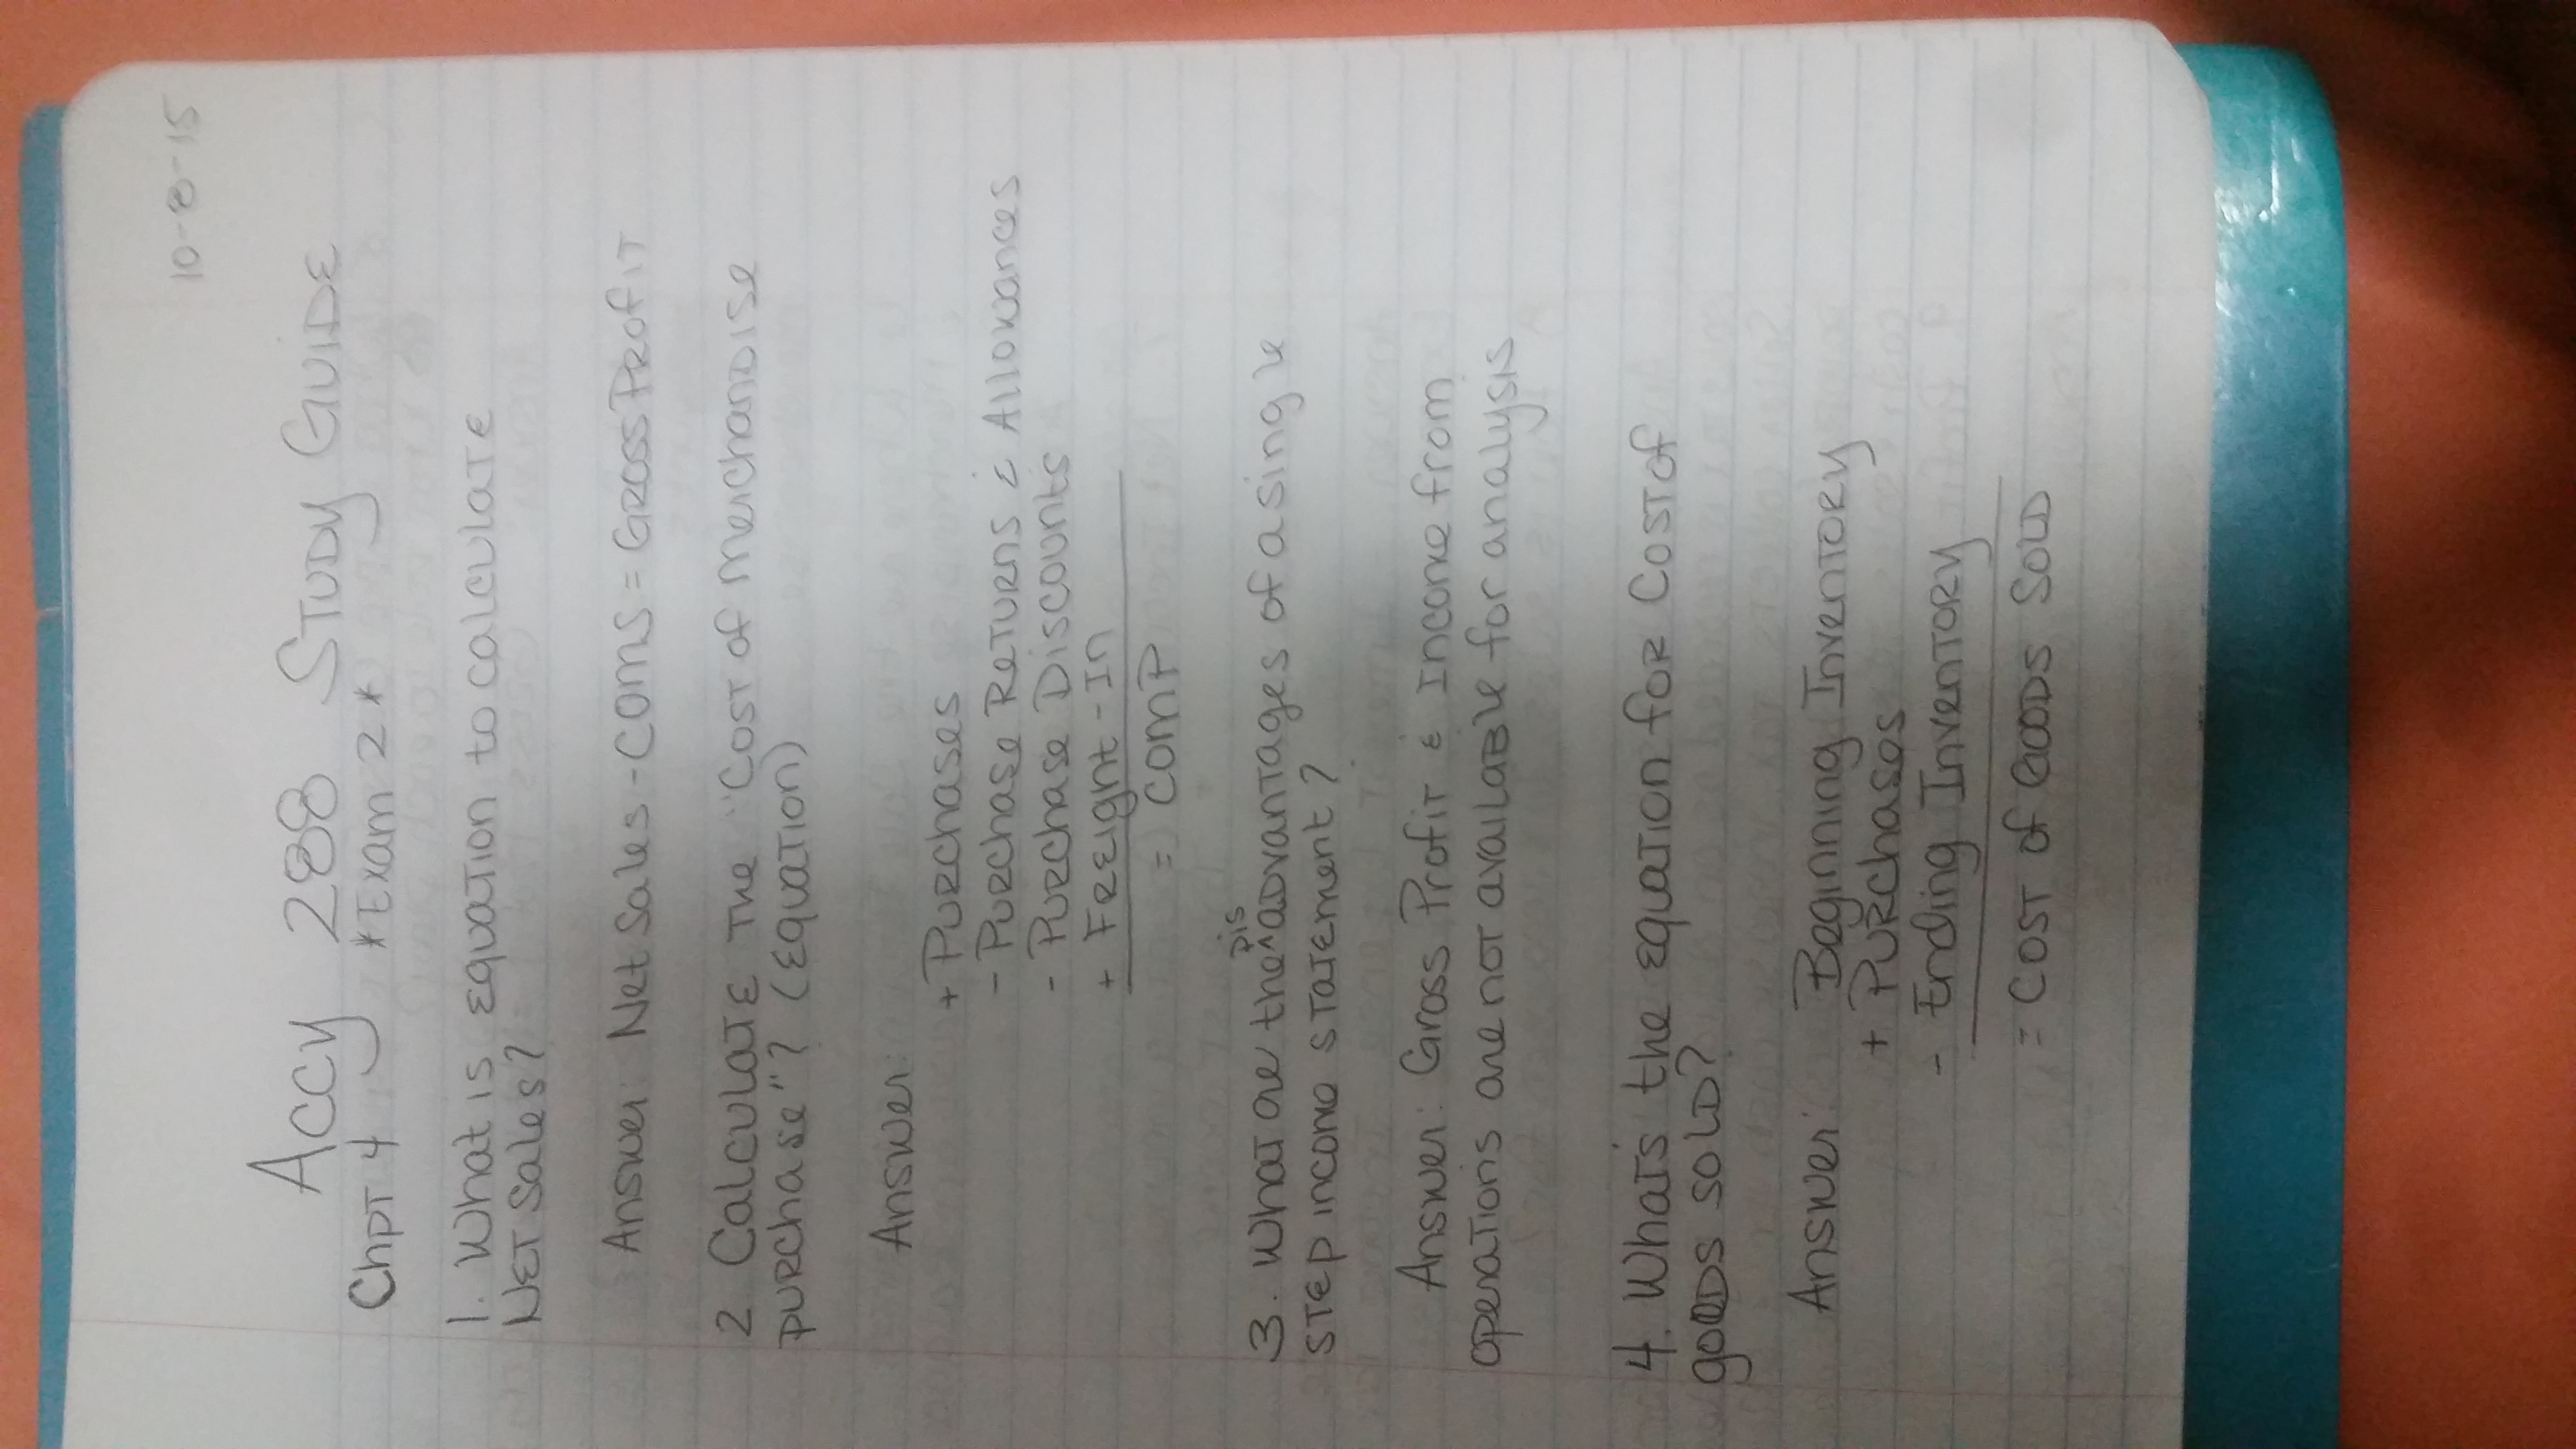 10-8-15
Accy 288 Study Guide
Chpt 4 *Exam 2*
1. What is equation to calculate
Net Sales?
Answer: Net Sales - COMS = Gross Profit
2. Calculate the "Cost of merchandise
purchase"? (Equation)
Answer:
+ Purchases
- Purchase Returns & Allowances
- Purchase Discounts
+ Freight-In
= COMP
Dis
3. What are the ^ advantages of a single
step income statement?
Answer: Gross Profit & Income from
operations are not available for analysis
4. What's the equation for Cost of
goods sold?
Answer: Beginning Inventory
+ Purchases
- Ending Inventory
= Cost of Goods Sold